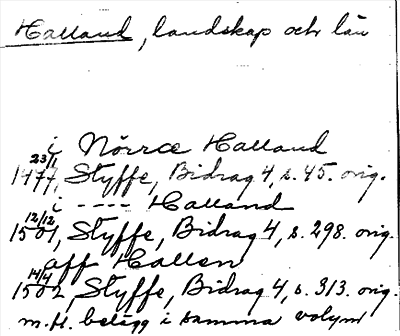 Halland, landskap och län
i Nörrce Halland
23/1
1477, Styffe, Bidrag 4, s. 45. orig.
i ---- Halland
12/12
1501, Styffe, Bidrag 4, s. 298. orig.
aff Hallen
14/4
1502 Styffe, Bidrag 4, s. 313. orig.
m.fl. belägg i samma volym